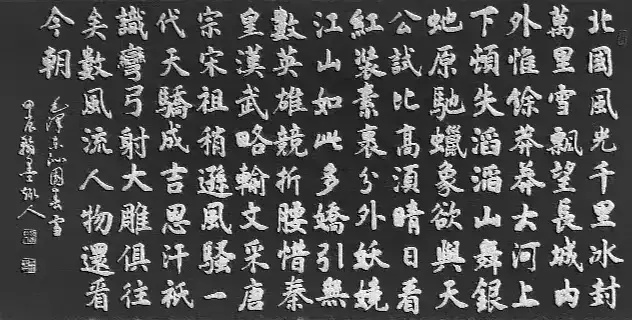 北國風光千里冰封
萬里雪飄望長城內
外惟餘莽莽大河上
下頓失滔滔山舞銀
虵原馳蠟象欲與天
公試比高須晴日看
紅裝素裹分外妖嬈
江山如此多嬌引無
數英雄競折腰惜秦
皇漢武略輸文采唐
宗宋祖稍遜風騷一
代天驕成吉思汗祇
識彎弓射大雕俱往
矣數風流人物還看
今朝
毛澤東沁園春雪